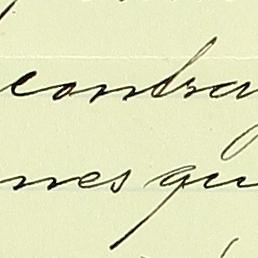 contra
nes qu